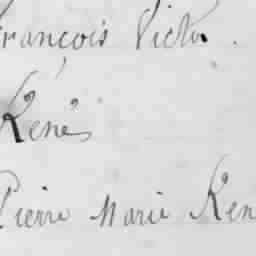 François Victor
René
Pierre Marie Ren